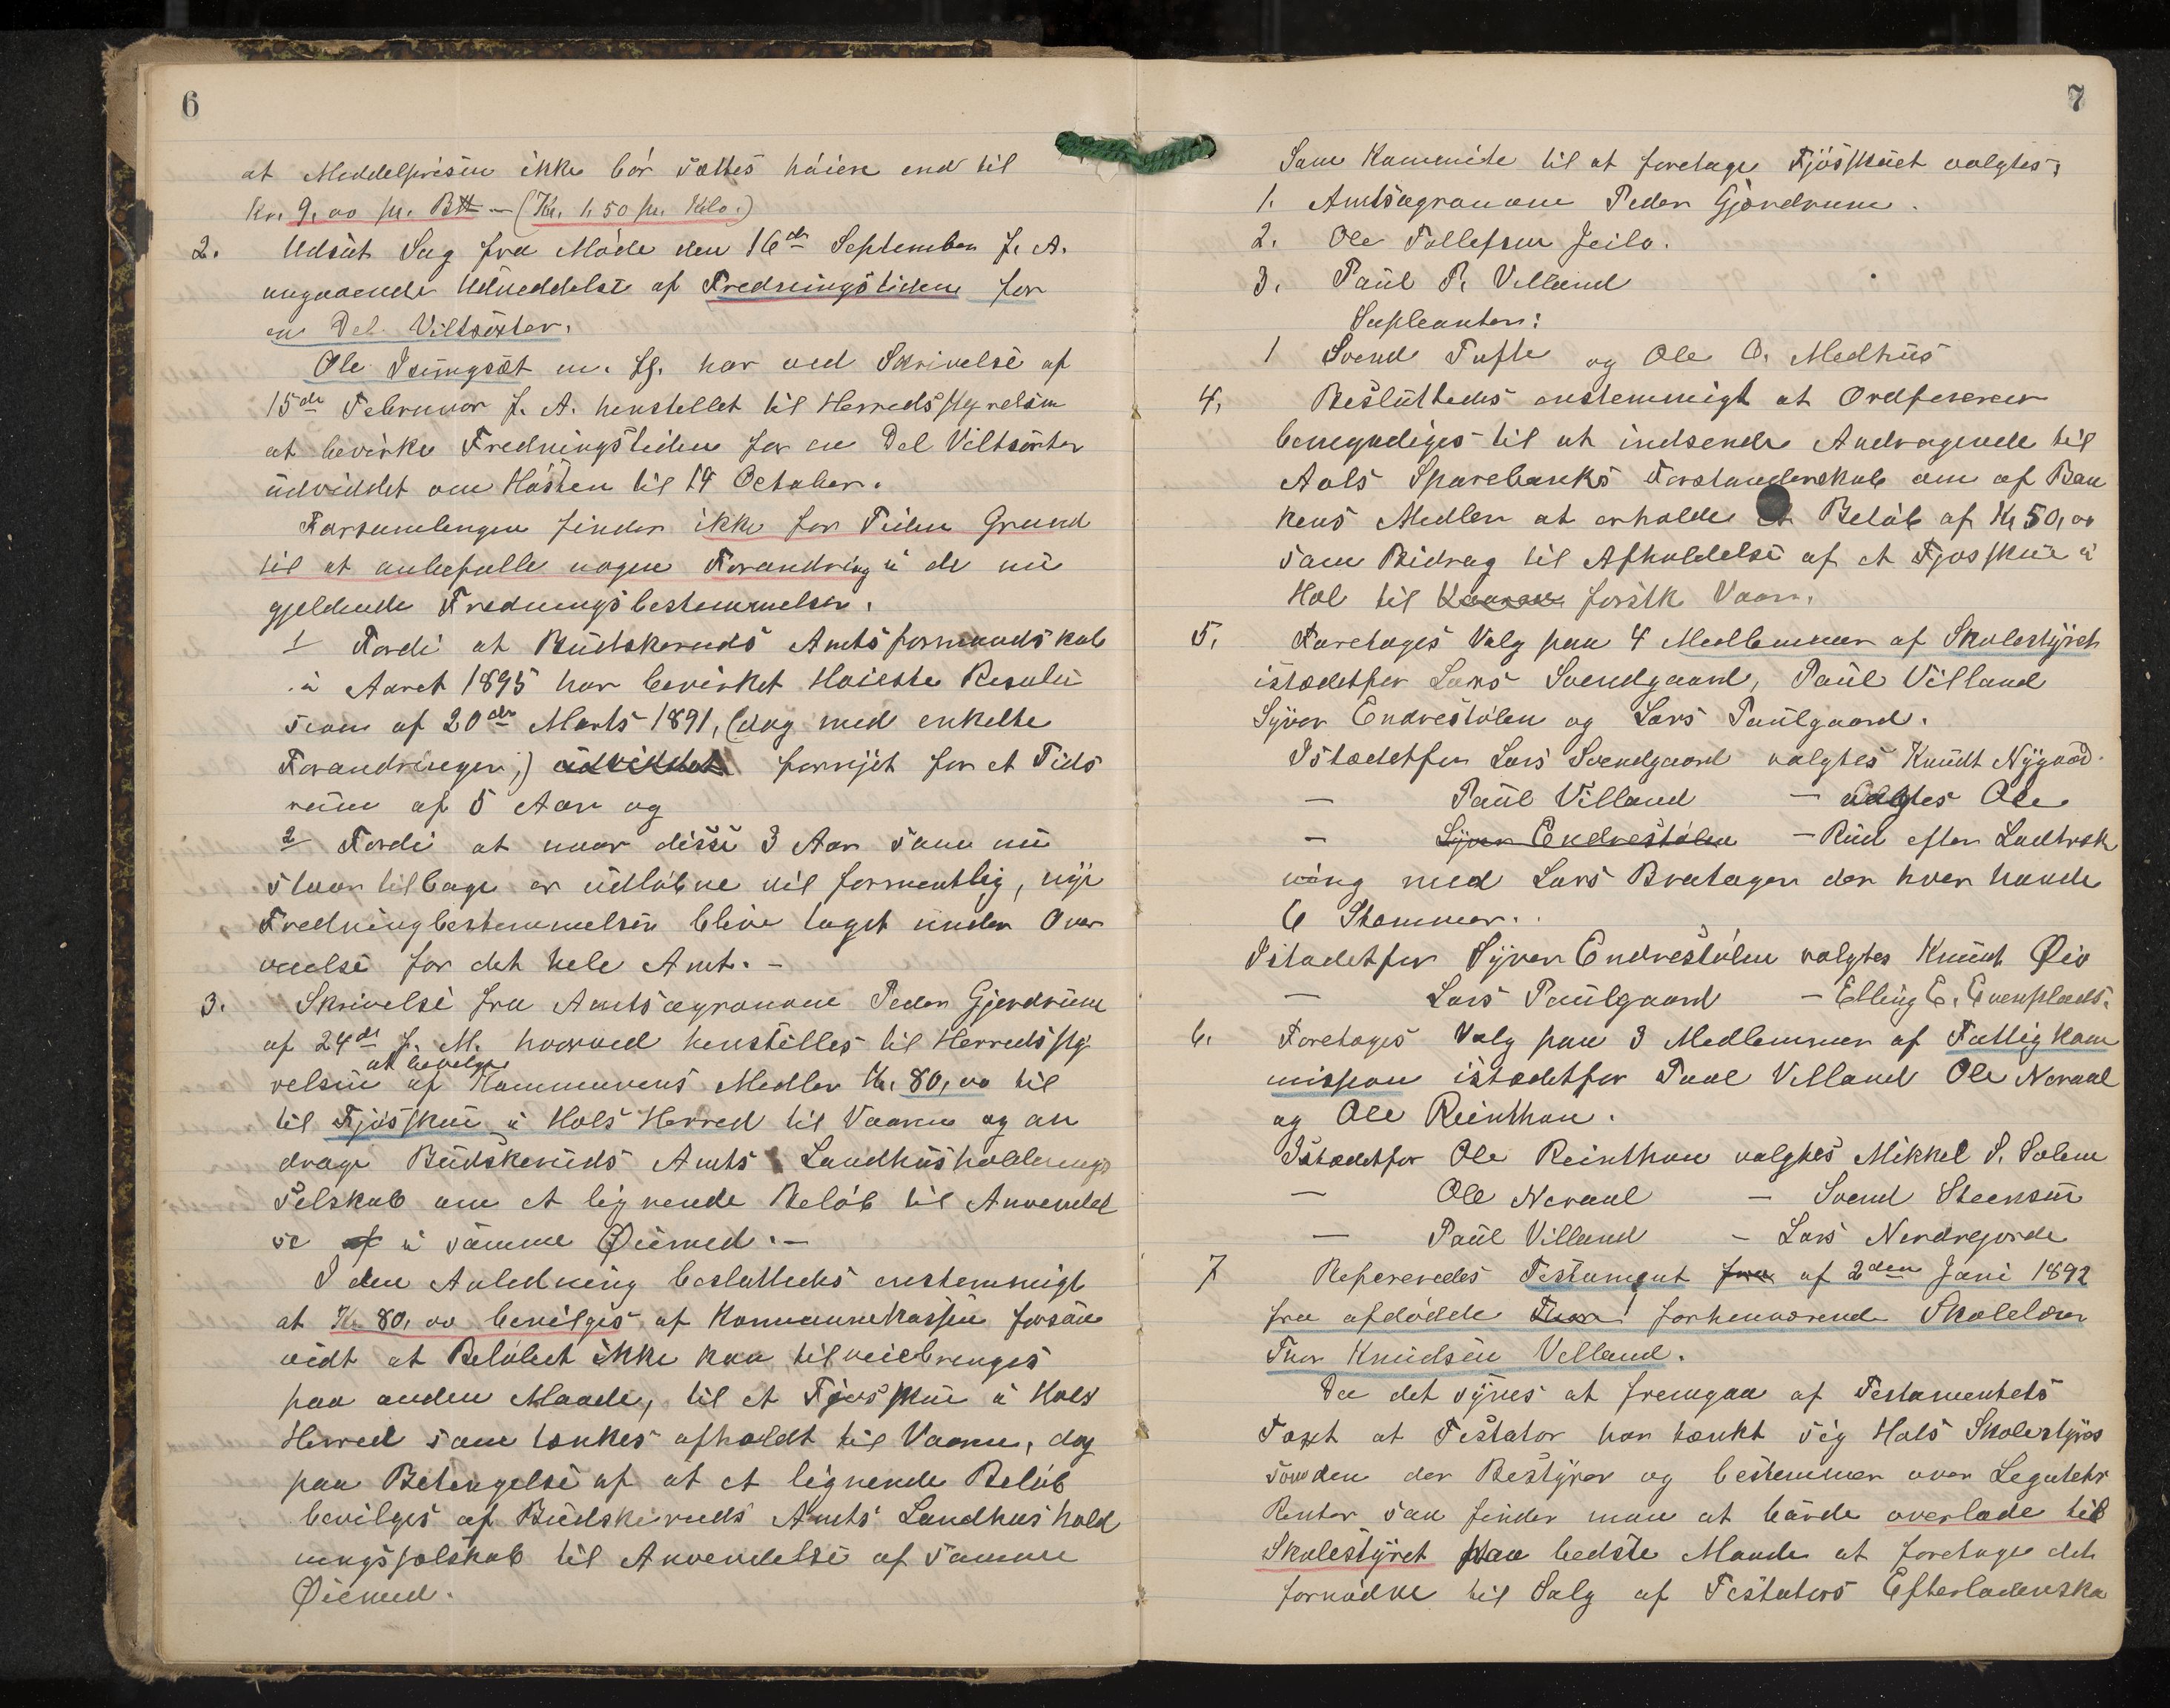 6
at Middelprisen ikke bør sættes høiere end til
Kr. 9,00 pr. B℔ - (Kr. 1,50 pr. Kilo.)
2. Udsat Sag fra Møde den 16de September f. A.
angaaende Udvidelse af Fredningstiden for
en Del Viltsorter.
Ole Isungsæt m. fl. har ved Skrivelse af
15de Februar f. A. henstillet til Herredsstyrelsen
at bevirke Fredningstiden for en Del Viltsorter
udvidet om Høsten til 14 October.
Forsamlingen finder ikke for Tiden Grund
til at anbefalle nogen Forandring i de nu
gjeldende Fredningsbestemmelser.
1 Fordi at Budskeruds Amtsformandskab
i Aaret 1895 har bevirket Høieste Resolu
sion af 20de Marts 1891, (dog med enkelte
Forandringer,) udvidet fornyet for et Tids
rum af 5 Aar og
2 Fordi at naar disse 3 Aar som nu
staar tilbage er udløbne vil formentlig, nye
Fredningbestemmelser blive taget under Over
veielse for det hele Amt. -
3. Skrivelse fra Amtsagronom Peder Gjørdrum
af 24de f. M. hvorved henstilles til Herredssty
at bevilge
relsen af Kommunens Midler Kr. 80,00 til
til Fjøsskue i Hols Herred til Vaaren og an
drage Budskeruds Amts Landhusholdnings
selskab om et lignende Beløb til Anvendel
se af i samme Øiemed. -
I den Anledning besluttedes enstemmigt
at Kr 80,00 bevilges af Kommunekassen forsaa
vidt at Beløbet ikke kan tilveiebringes
paa anden Maade, til et Fjøsskue i Hols
Herred som tænkes afholdt til Vaaren, dog
paa Betingelse af at et lignende Beløb
bevilges af Budskeruds Amts Landhushold
ningsselskab til Anvendelse af samme
Øiemed.
7
Som Kommite til at foretage Fjøsskuet valgtes;
1. Amtsagronom Peder Gjørdrum.
2. Ole Tollefsen Jeilo.
3. Paul P. Villand
Supleanter:
1 Svend Tufte og Ole O. Medhus
4. Besluttedes enstemmigt at Ordføreren
bemyndiges til at indsende Andragende til
Aals Sparebanks Forstanderskab om af Ban
kens Midler at erholde et Beløb af Kr 50,00
som Bidrag til Afholdelse af et Fjøsskue i
Hol til førstk Vaar.
5. Foretoges Valg paa 4 Medlemmer af Skolestyret
istædetfor Lars Svendgaard, Paul Villand
Syver Endrestølen og Lars Paulgaard.
Istædetfor Lars Svendgaard valgtes Knudt Nygaad.
— Paul Villand — valgtes Ole
— Syver Endrestølen — Rud efter Lodtræk
ning med Lars Bratager der hver havde
6 Stemmer.
Istadetfor Syver Endrestølen valgtes Knudt Øio
— Lars Paulgaard — Elling E. Evensplads.
6. Foretoges Valg paa 3 Medlemmer af Fattigkom
mission istædetfor Paul Villand Ole Neraal
og Ole Reinthon.
Istædetfor Ole Reinthon valgtes Mikkel S. Solem
— Ole Neraal — Svend Steensen
— Paul Villand — Lars Nerdregjorde
7 Refereredes Testament fra af 2den Juni 1892
fra afdødde Thor! forhenværende Skolelærer
Thor Knudsen Villand.
Da det synes at fremgaa af Testamentets
Text at Testator har tænkt sig Hols Skolestyres
som den der Bestyrer og bestemmer over Legatets
Renter saa finder man at burde overlade til
Skolestyret paa bedste Maade at foretage det
fornødne til Salg af Testators Efterladenska